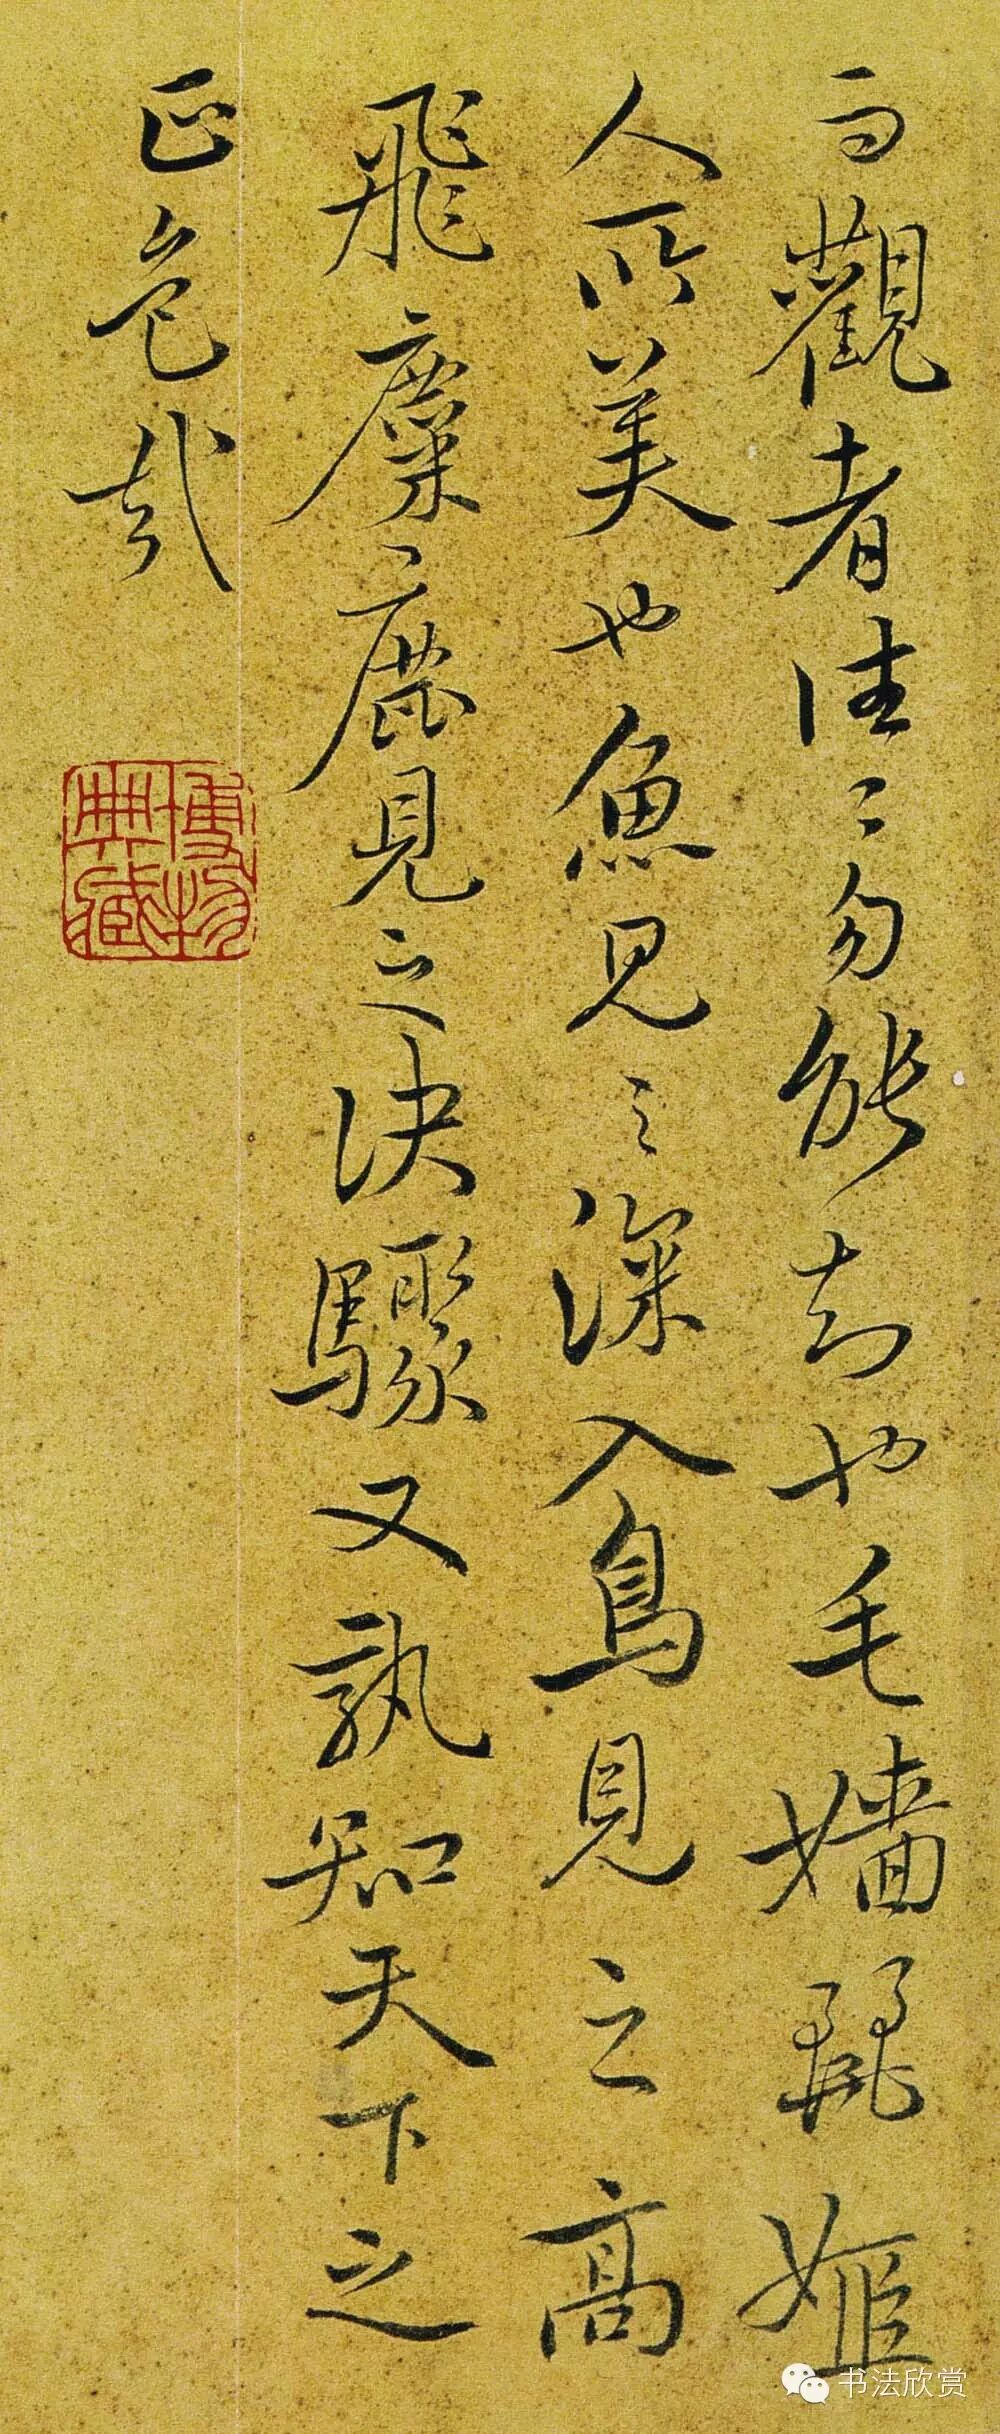 而觀者往〻勿能知也毛嬙麗姬
人所美也魚見之深入鳥見之高
飛麋〻鹿見之決驟又孰知天下之
正色哉
博物
典藏
书法欣赏